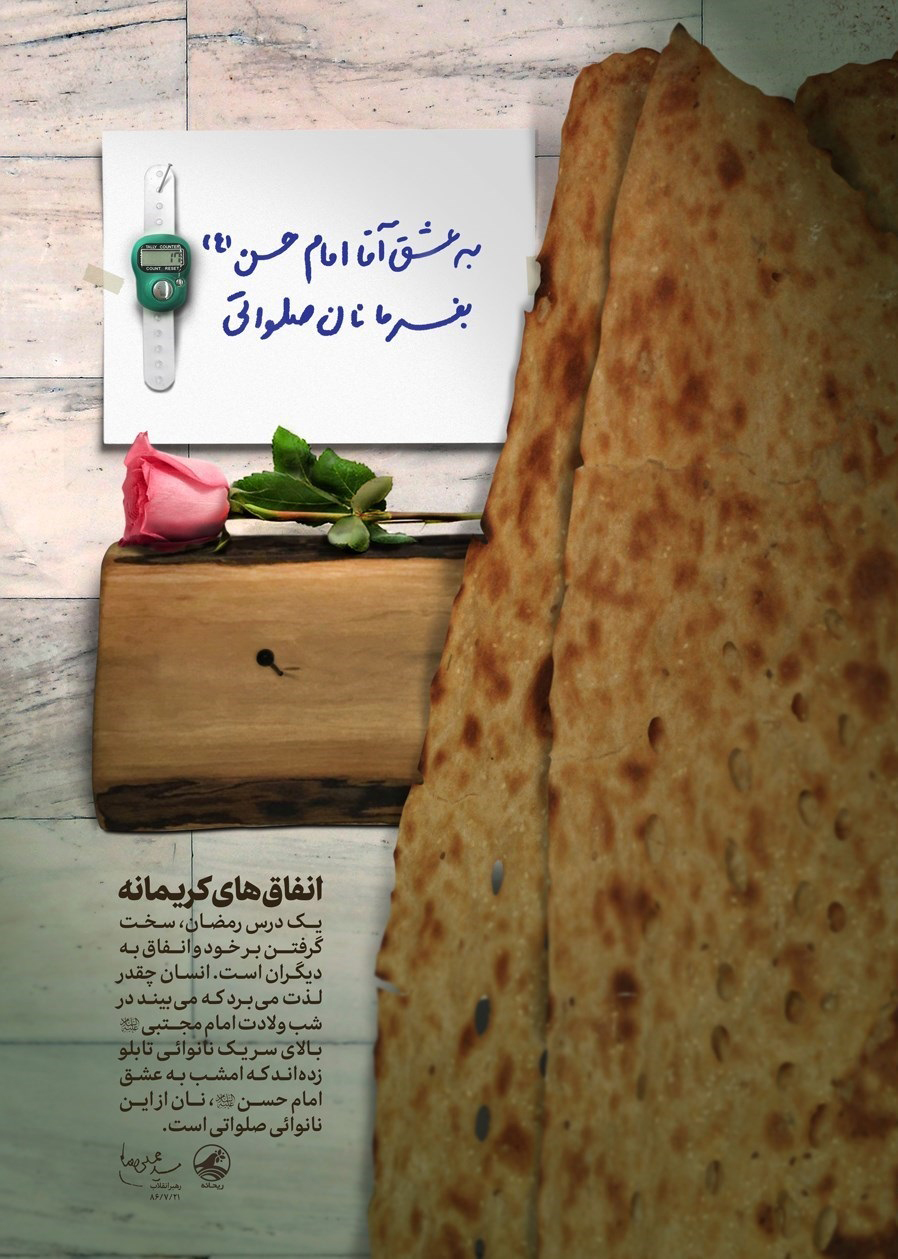 به عشق آقا امام حسن (ع)
بفرما نان صلواتی
TALLY COUNTER
COUNT RESET
انفاق‌های کریمانه
یک درس رمضان، سخت
گرفتن بر خود و انفاق به
دیگران است. انسان چقدر
لذت می‌برد که می‌بیند در
شب ولادت امام مجتبی
بالای سر یک نانوائی تابلو
زده‌اند که امشب به عشق
امام حسن ، نان از این
نانوائی صلواتی است.
ریحانه
رهبر انقلاب
۸۶/۷/۲۱